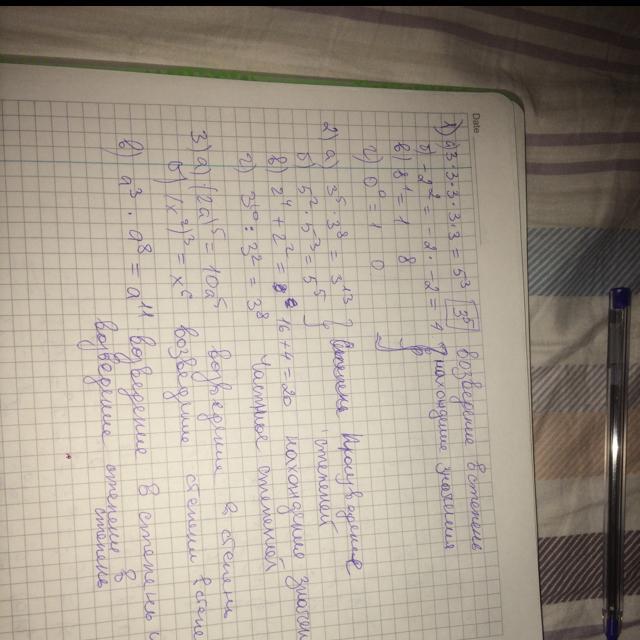 Date
1) а) 3·3·3·3·3 = 5³ [3⁵] возведение в степень
б) -2² = -2·-2 = 4 } нахождение значения
в) 8¹ = 1 8
г) 0⁰ = 1 0
2 а) 3⁵·3⁸ = 3¹³ }
б) 5²·5³ = 5⁵ } произведение степеней
в) 2⁴ + 2² = 16 + 4 = 20 нахождение
г) 3¹⁰ : 3² = 3⁸ частное степеней
3) а) (2a)⁵ = 10a⁵ возведение в степень
б) (x²)³ = x⁶ возведение степени в
в) a³ · a⁸ = a¹¹ возведение в степень и
возведение степени в степень